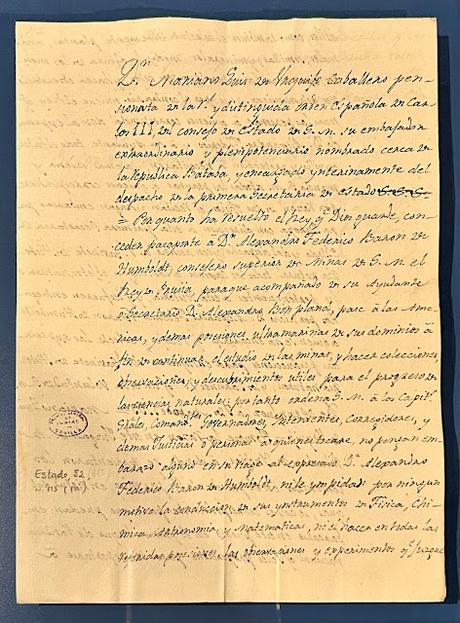 Dn. Mariano Luis de Urquijo Caballero pen-
sionata de la rl. y distinguida orden Española de Car-
los III, del consejo de Estado de S. M. su embajador
extraordinario y plenipotenciario nombrado cerca de
la republica Bataba, y encargado ynterinamente del
despacho de la primera Secretaria de estado
= Por quanto ha resuelto el rey q Dios guarde, con-
ceder pasaporte à Dn. Alexandro Federico Baron de
Humboldt, consejero superior de Minas de S. M. el
Rey de Prusia, para que acompañado de su Ayudante
ò Secretario D. Alexandro Bonpland, pase à las Ame-
ricas, y demas posesiones ultramarinas de sus dominios à
fin de continuar el estudio de las minas, y hacer colecciones,
observaciones, y descubrimientos utiles para el progreso de
las ciencias naturales; por tanto ordena S. M. à los Capits.
Grales, Comandtes. Governadores, Yntendentes, Corregidores, y
demas Justicias ò personas à quienes tocare, no pongan em-
barazo alguno en su viage al expresado Dn. Alexandro
Federico Baron de Humboldt, ni le ympidan por ningun
motivo la conduccion de sus ynstrumentos de Fisica, Chi-
mica, Astronomia, y Matematicas, ni el hacer en todas las
referidas posesiones, las observaciones y experimentos qe. juzgue
SEVILLA
Estado, 52,